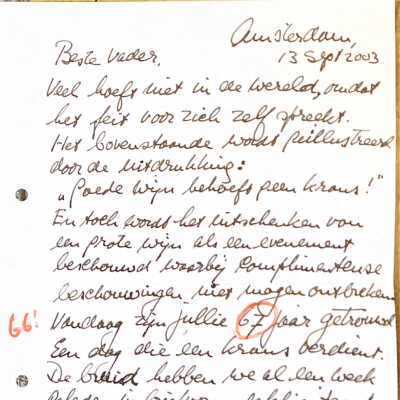 Amsterdam,
13 Sept 2003
Beste vader,
Veel hoeft niet in de wereld, omdat
het feit voor zich zelf spreekt.
Het bovenstaande wordt geïllustreerd
door de uitdrukking:
"Goede wijn behoeft geen krans!"
En toch wordt het uitschenken van
een grote wijn als een evenement
beschouwd waarbij complimenteuse
beschouwingen niet mogen ontbreken
66! Vandaag zijn jullie 67 jaar getrouwd
Een dag die een krans verdient.
De bruid hebben we al een week
geleden in